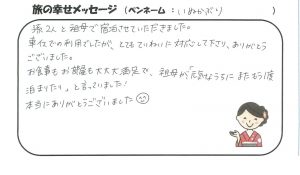 旅の幸せメッセージ（ペンネーム：いぬかぶり）
孫2人と祖母で宿泊させていただきました。
車イスでの利用でしたが、とてもていねいに対応して下さり、ありがとう
ございました。
お食事もお部屋も大大大満足で、祖母が「元気なうちにまたもう1度
泊まりたい」と言っていました！
本当にありがとうございました